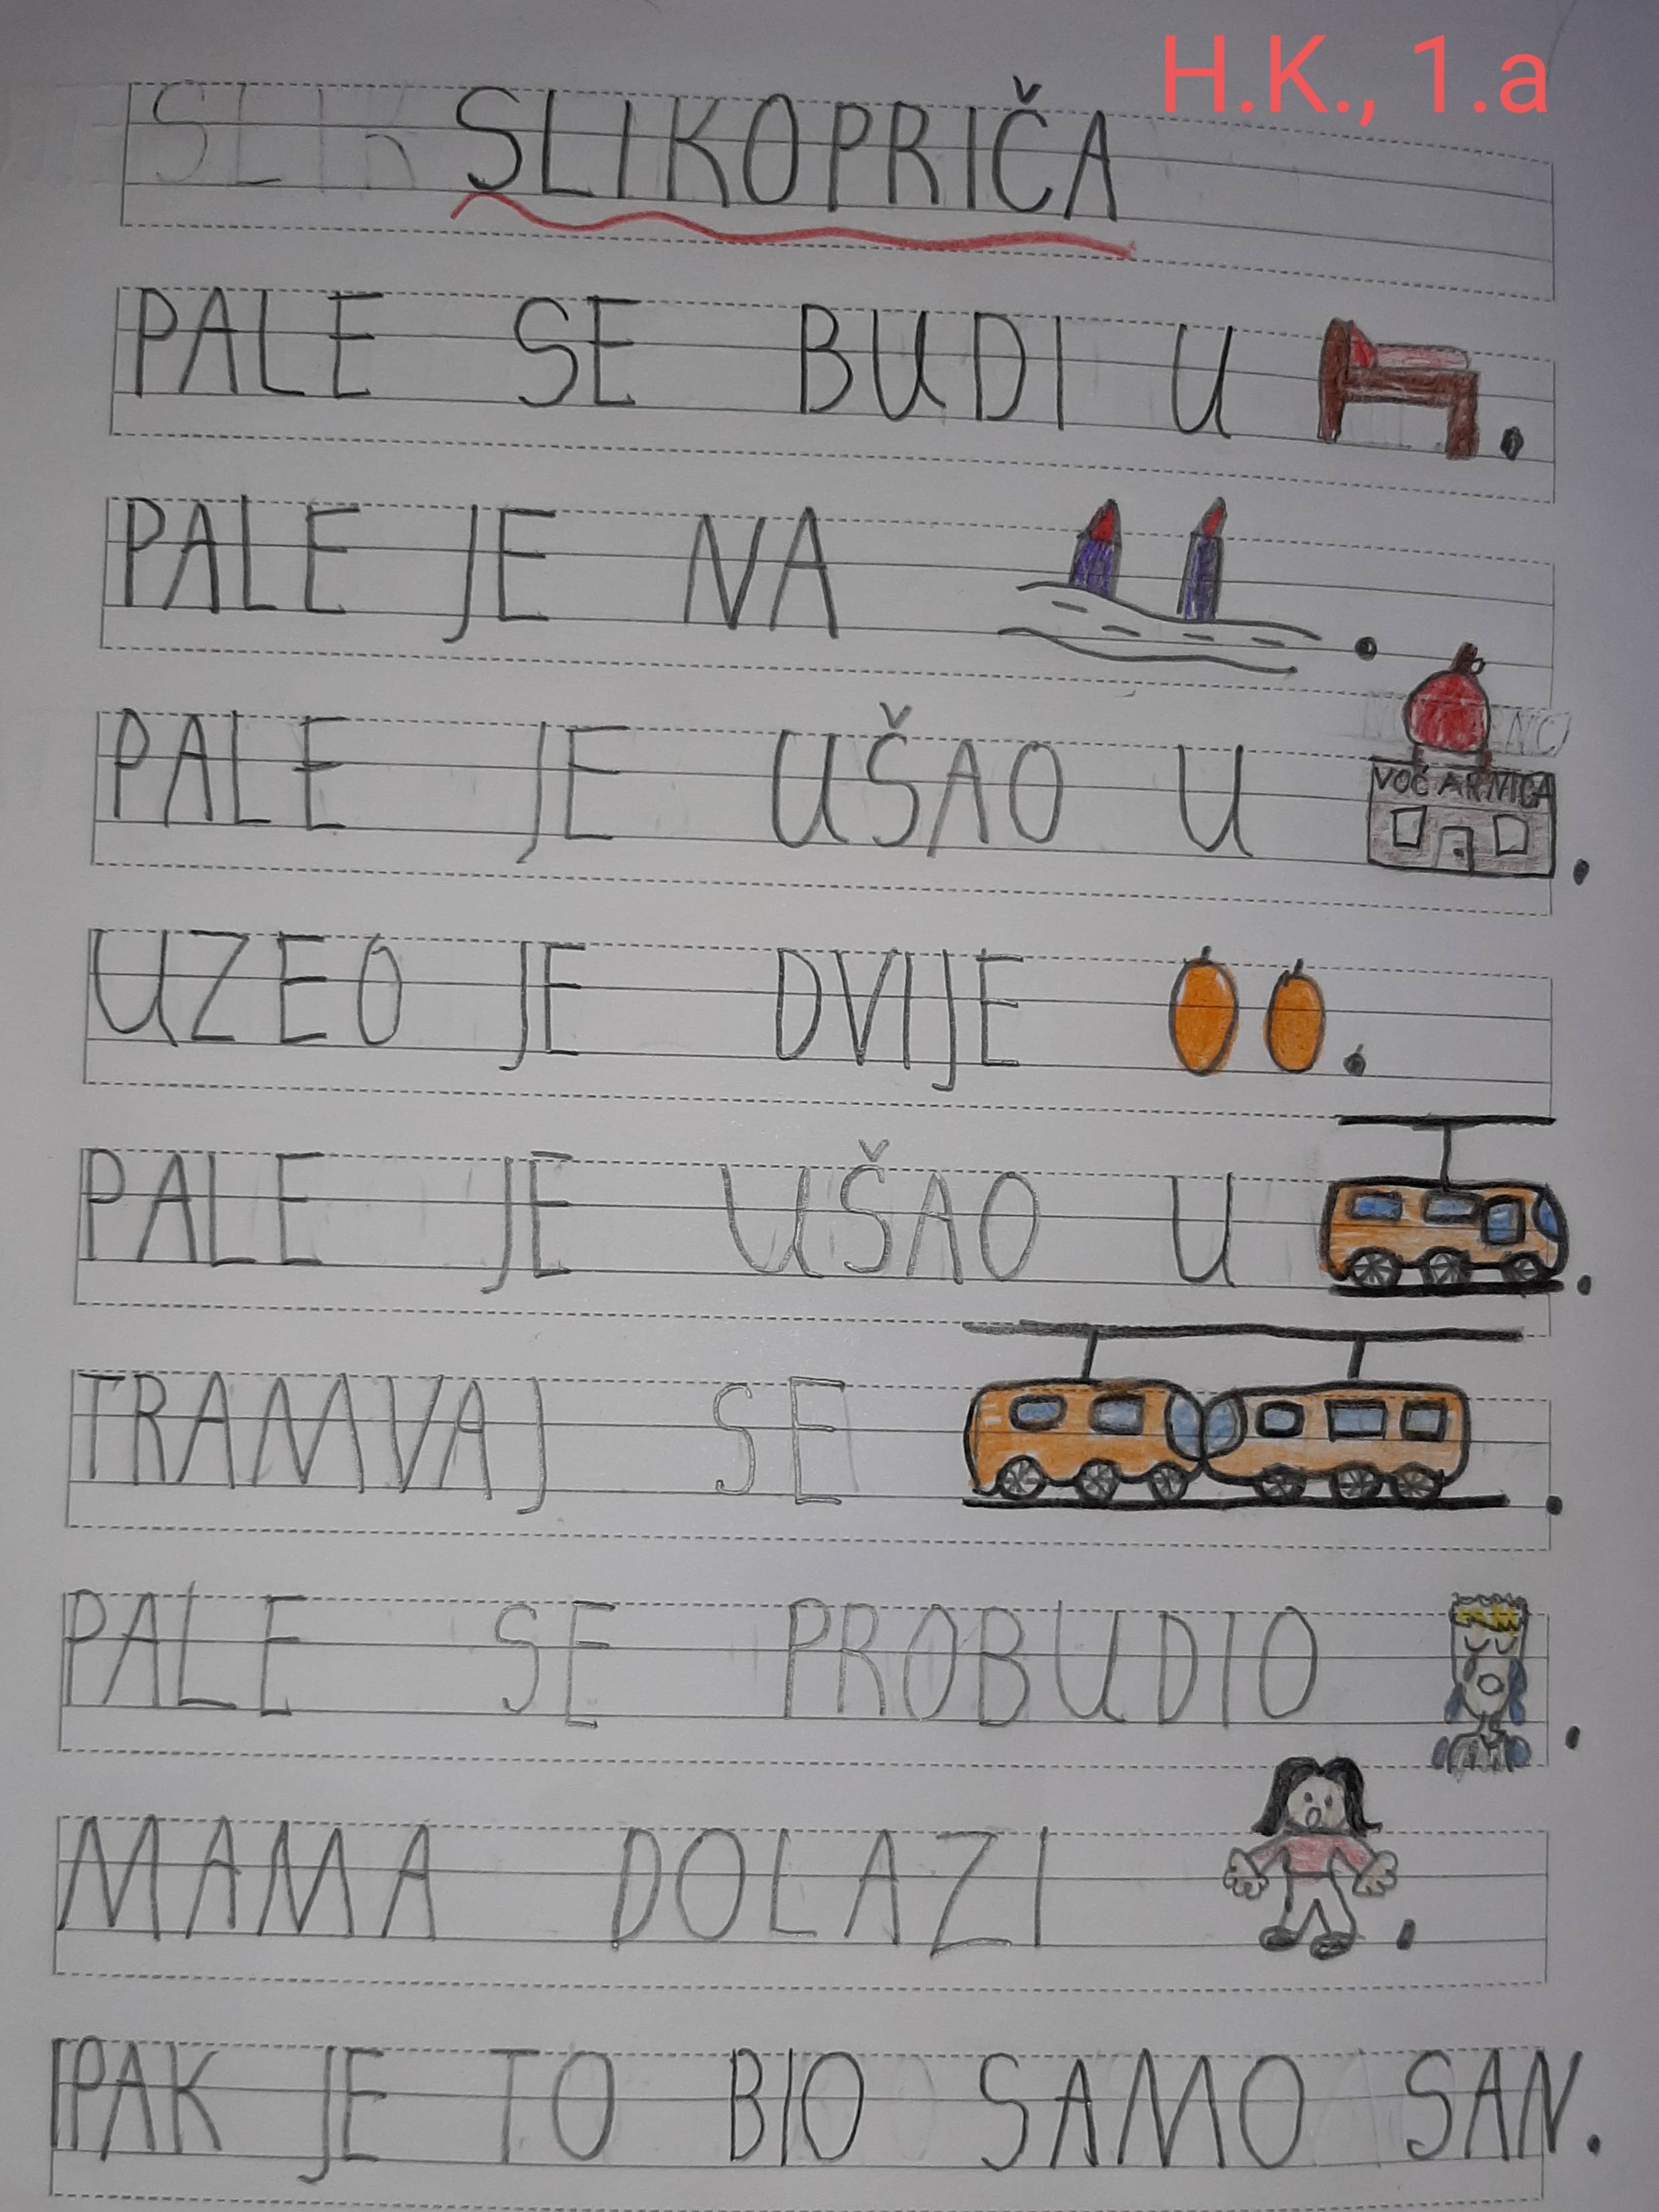 H.K., 1.a
SLIK SLIKOPRIČA
PALE SE BUDI U .
PALE JE NA .
PALE JE UŠAO U VOĆARNICA .
UZEO JE DVIJE .
PALE JE UŠAO U .
TRAMVAJ SE .
PALE SE PROBUDIO .
MAMA DOLAZI .
IPAK JE TO BIO SAMO SAN.